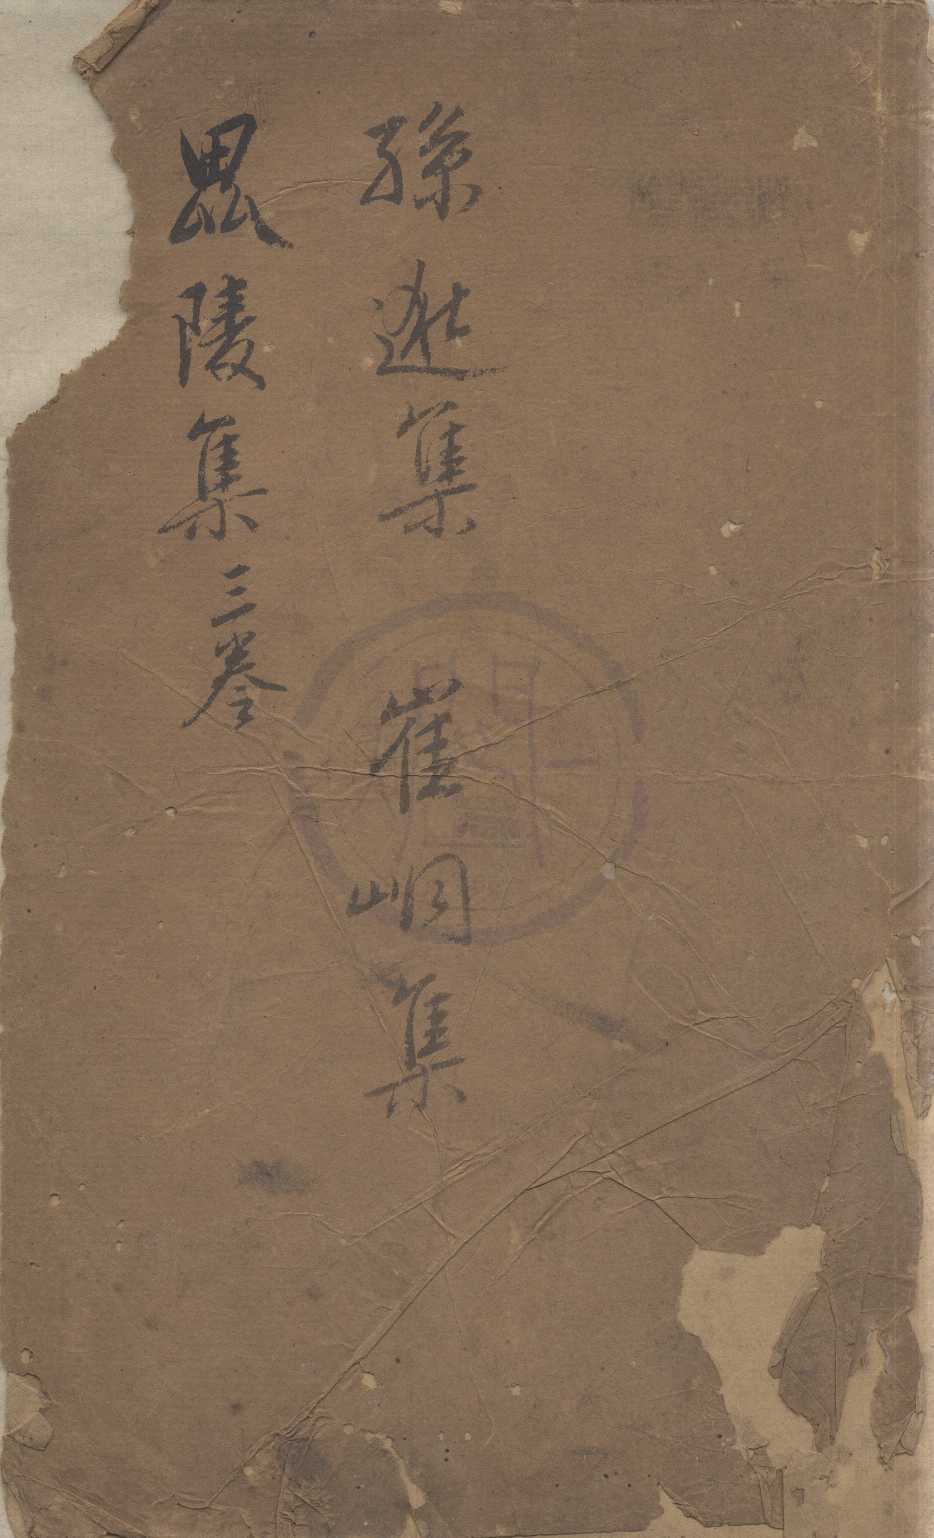 孫逖集 崔峒集
毘陵集三卷